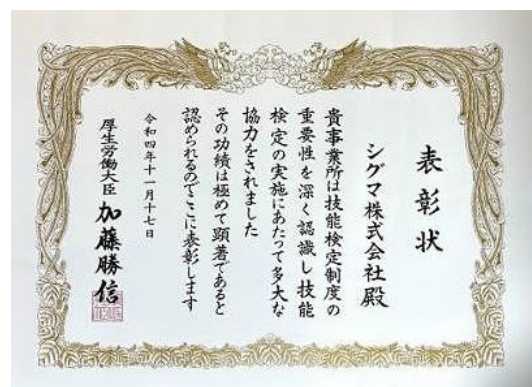 表彰状
シグマ株式会社殿
貴事業所は技能検定制度の
重要性を深く認識し技能
検定の実施にあたって多大な
協力をされました
その功績は極めて顕著であると
認められるのでここに表彰します
令和四年十一月十七日
厚生労働大臣 加藤勝信